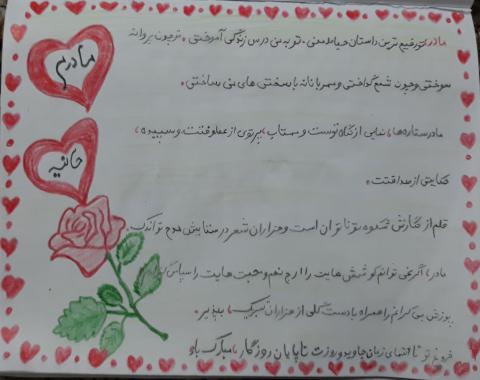 مادرم
حانیه
مادر، تو رفیع ترین داستان حیات منی. تو به من درس زندگی آموختی. تو چون پروانه
سوختی و چون شمع گداختی و مهربانانه با سختی های من ساختی.
مادر ستاره‌ها، نمایی از نگاه توست و مهتاب، پرتوی از عطوفتت، و سپیده،
حکایتی از صداقتت.
قلم از نگارش شکوه تو ناتوان است و هزاران شعر در ستایش مدح تو اندک.
مادر، اگر نمی توانم کوشش هایت را ارج نهم و محبت هایت را سپاس گویم،
پوزش بی کرانم را همراه با دسته گلی از هزاران تبریک، بپذیر.
فروغ تو تا انتهای زمان جاوید و روزت تا پایان روزگار، مبارک باد